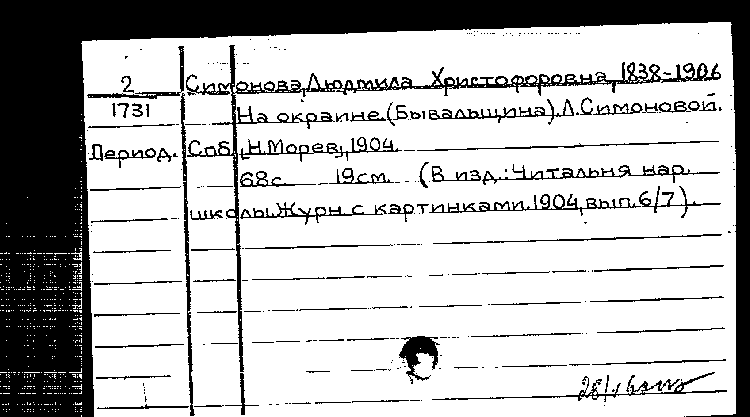 2 Симонова, Людмила Христофоровна, 1838-1906
1731 На окраине. (Бывальщина). Л. Симоновой.
Период. Спб, Н. Морев, 1904.
68с. 19см. (В изд.: Читальня нар.
школы. Журн. с картинками. 1904, вып. 6/7).